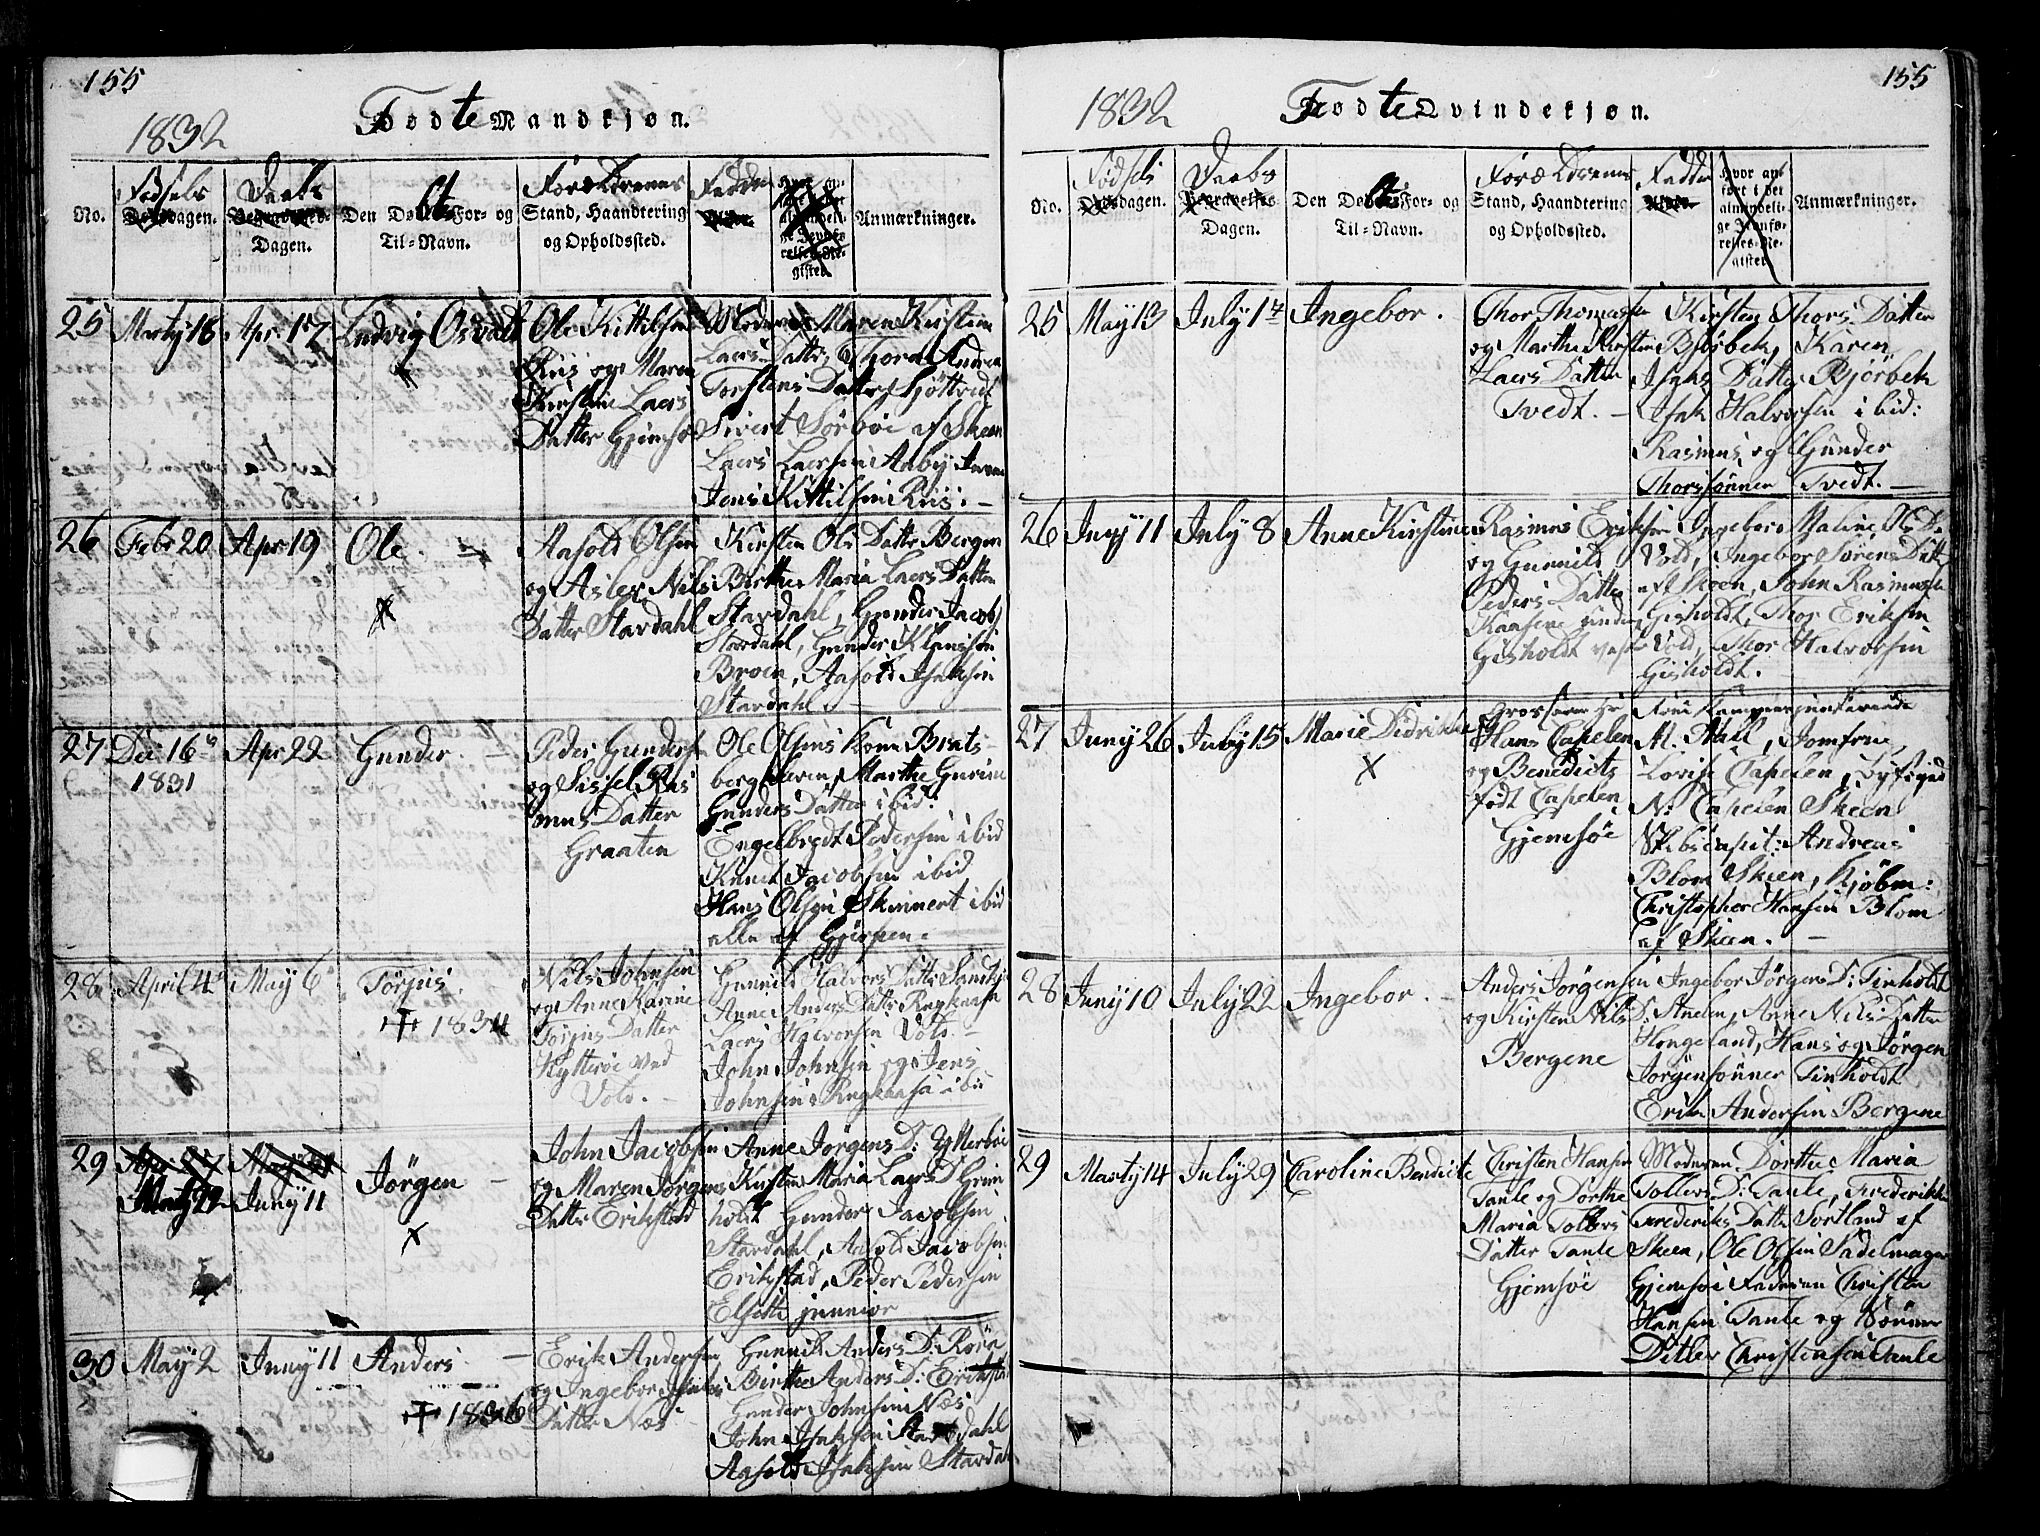 155
1832
Fødte Mandkjøn.
No.
Fødsels
Dagen.
Daabs
Dagen.
Den Døbtes For- og
Til-Navn.
Forældrenes
Stand, Haandtering
og Opholdssted.
Faddere
Anmærkninger.
25 Marty 18 Apr. 17 Ludvig Osvald
Ole Kittilsen
Riis og Maren
Kirstine Laers
Datter Gjemsø
Moderen Maren Kirstine
Laers Datter, Thora Andrea
Torstens Datter
Sivert Sørbøe af Skeen
Laers Laersen Aaby
Jens Kittilsen Riis. —
26 Febr 20 Apr 19 Ole.
Aasold Olsen
og Aslex Nils
Datter Stardahl
Kirsten Ols Datter Bergen
Birthe Maria Laers Datter
Stardahl, Gunder Jacobs
Stordahl, Gunder Klemsen
Broen, Aasold Isaksen
Stardahl. —
27 Dec 16 Apr 22 Gunder —
1831
Peder Gunders
og Sissel Ras
mus Datter
Graaten
Ole Olsens Kone Brats-
bergkleven, Marthe Gurine
Gunders Datter ibid:
Engelbredt Pedersen ibid
Knud Jacobsen ibid
Hans Olsen Skinnert ibid
alle af Gjerpen. —
28 April 4 May 6 Törjus.
1834
Nils Johnsen
og Anne Karine
Torjus Datter
Hytterøe ved
Vold. —
Gunnild Halvors Datter
Anne Anders Datter
Laers Halvorsen Vold. —
John Johnsen og Jens
Johnsen
29 Juny 11 Jørgen —
John Jacobsen
og Maren Jørgens
Datter Erikstad
Anne Jørgens D: Ytterbøe
Kirsten Maria Laers D Grim
holdt Gunder Jacobsen
Stardahl, Aasold Jacobsen
Erikstad, Peder Pedersen
Elsette junnior
30 May 2 Juny 11 Anders —
1836
Erik Andersen
og Ingebor
Datter Næs
Gunnild Anders D: Røra
Birthe Anders D: Erikstad
Gunder Johnsen Næs
John Isaksen Stardahl
Aasold Isaksen Stardahl
155
1832
Fødte Qvindekjøn.
No.
Fødsels
Dagen.
Daabs
Dagen.
Den Døbtes For- og
Til-Navn.
Forældrenes
Stand, Haandtering
og Opholdssted.
Faddere
Hvor an-
ført i det
almindeli-
ge Jevnfø-
relses-Re-
gister.
Anmærkninger.
25 May 13 July 1 Ingebor.
Thor Thomassen
og Marthe Kirsten
Laers Datter
Tvedt. —
Kirsten Thors Datter
Bjørbek, Karen
Isaks Datter Bjørbek
Isak Halvorsen ibid:
Rasmus og Gunder
Thorssønner Tvedt. —
26 Juny 11 July 8 Anne Kirstine
Rasmus Eriksen
og Gunnild
Peders Datter
Kaasene under
Gisholdt vestre
Ingebor Maline
Vold, Ingebor Sørens Datt
af Skeen, John Rasmussen
Gisholdt, Thor Eriksen
Vold, Thor Halvorsen
Gisholdt. —
27 Juny 26 July 15 Marie Didrikke
Grosserer Hr
Hans Capelen
og Benedicte
født Capelen
Gjemsøe
M. Aall, Jomfrue
Lovise Capelen, Byfoged
N: Capelen Skeen
Skibscapit: Andreas
Blom Skien, Kjöbm:
Christopher Hansen Blom
af Skeen. —
28 Juny 10 July 22 Ingebor. —
Anders Jørgensen
og Kirsten Nils D:
Bergene
Ingebor Jörgens D: Finholdt
Anne Nils Datter
Hongeland, Hans og Jørgen
Jørgensønner Finholdt
Erik Andersen Bergene
29 Marty 14 July 29 Caroline Bendicte
Christen Hansen
Tanke og Dorthe
Maria Tollers
Datter Tanke
Gjemsøe
Moderen Dorthe Maria
Tollers D: Tanke, Frederikke
Frederiks Datter Sortland af
Skeen, Ole Olsen Sadelmager
Gjemsøe Faderen Christen
Hansen Tanke og Sønnen
Ditlev Christensen Tanke